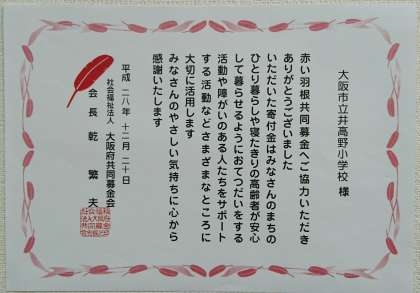 大阪市立井高野小学校 様
赤い羽根共同募金へご協力いただき
ありがとうございました
いただいた寄付金はみなさんのまちの
ひとり暮らしや寝たきりの高齢者が安心
して暮らせるようにおてつだいをする
活動や障がいのある人たちをサポート
する活動などさまざまなところに
大切に活用します
みなさんのやさしい気持ちに心から
感謝いたします
平成 二八年 十二月 二十日
社会福祉法人 大阪府共同募金会
会長 乾 繁夫